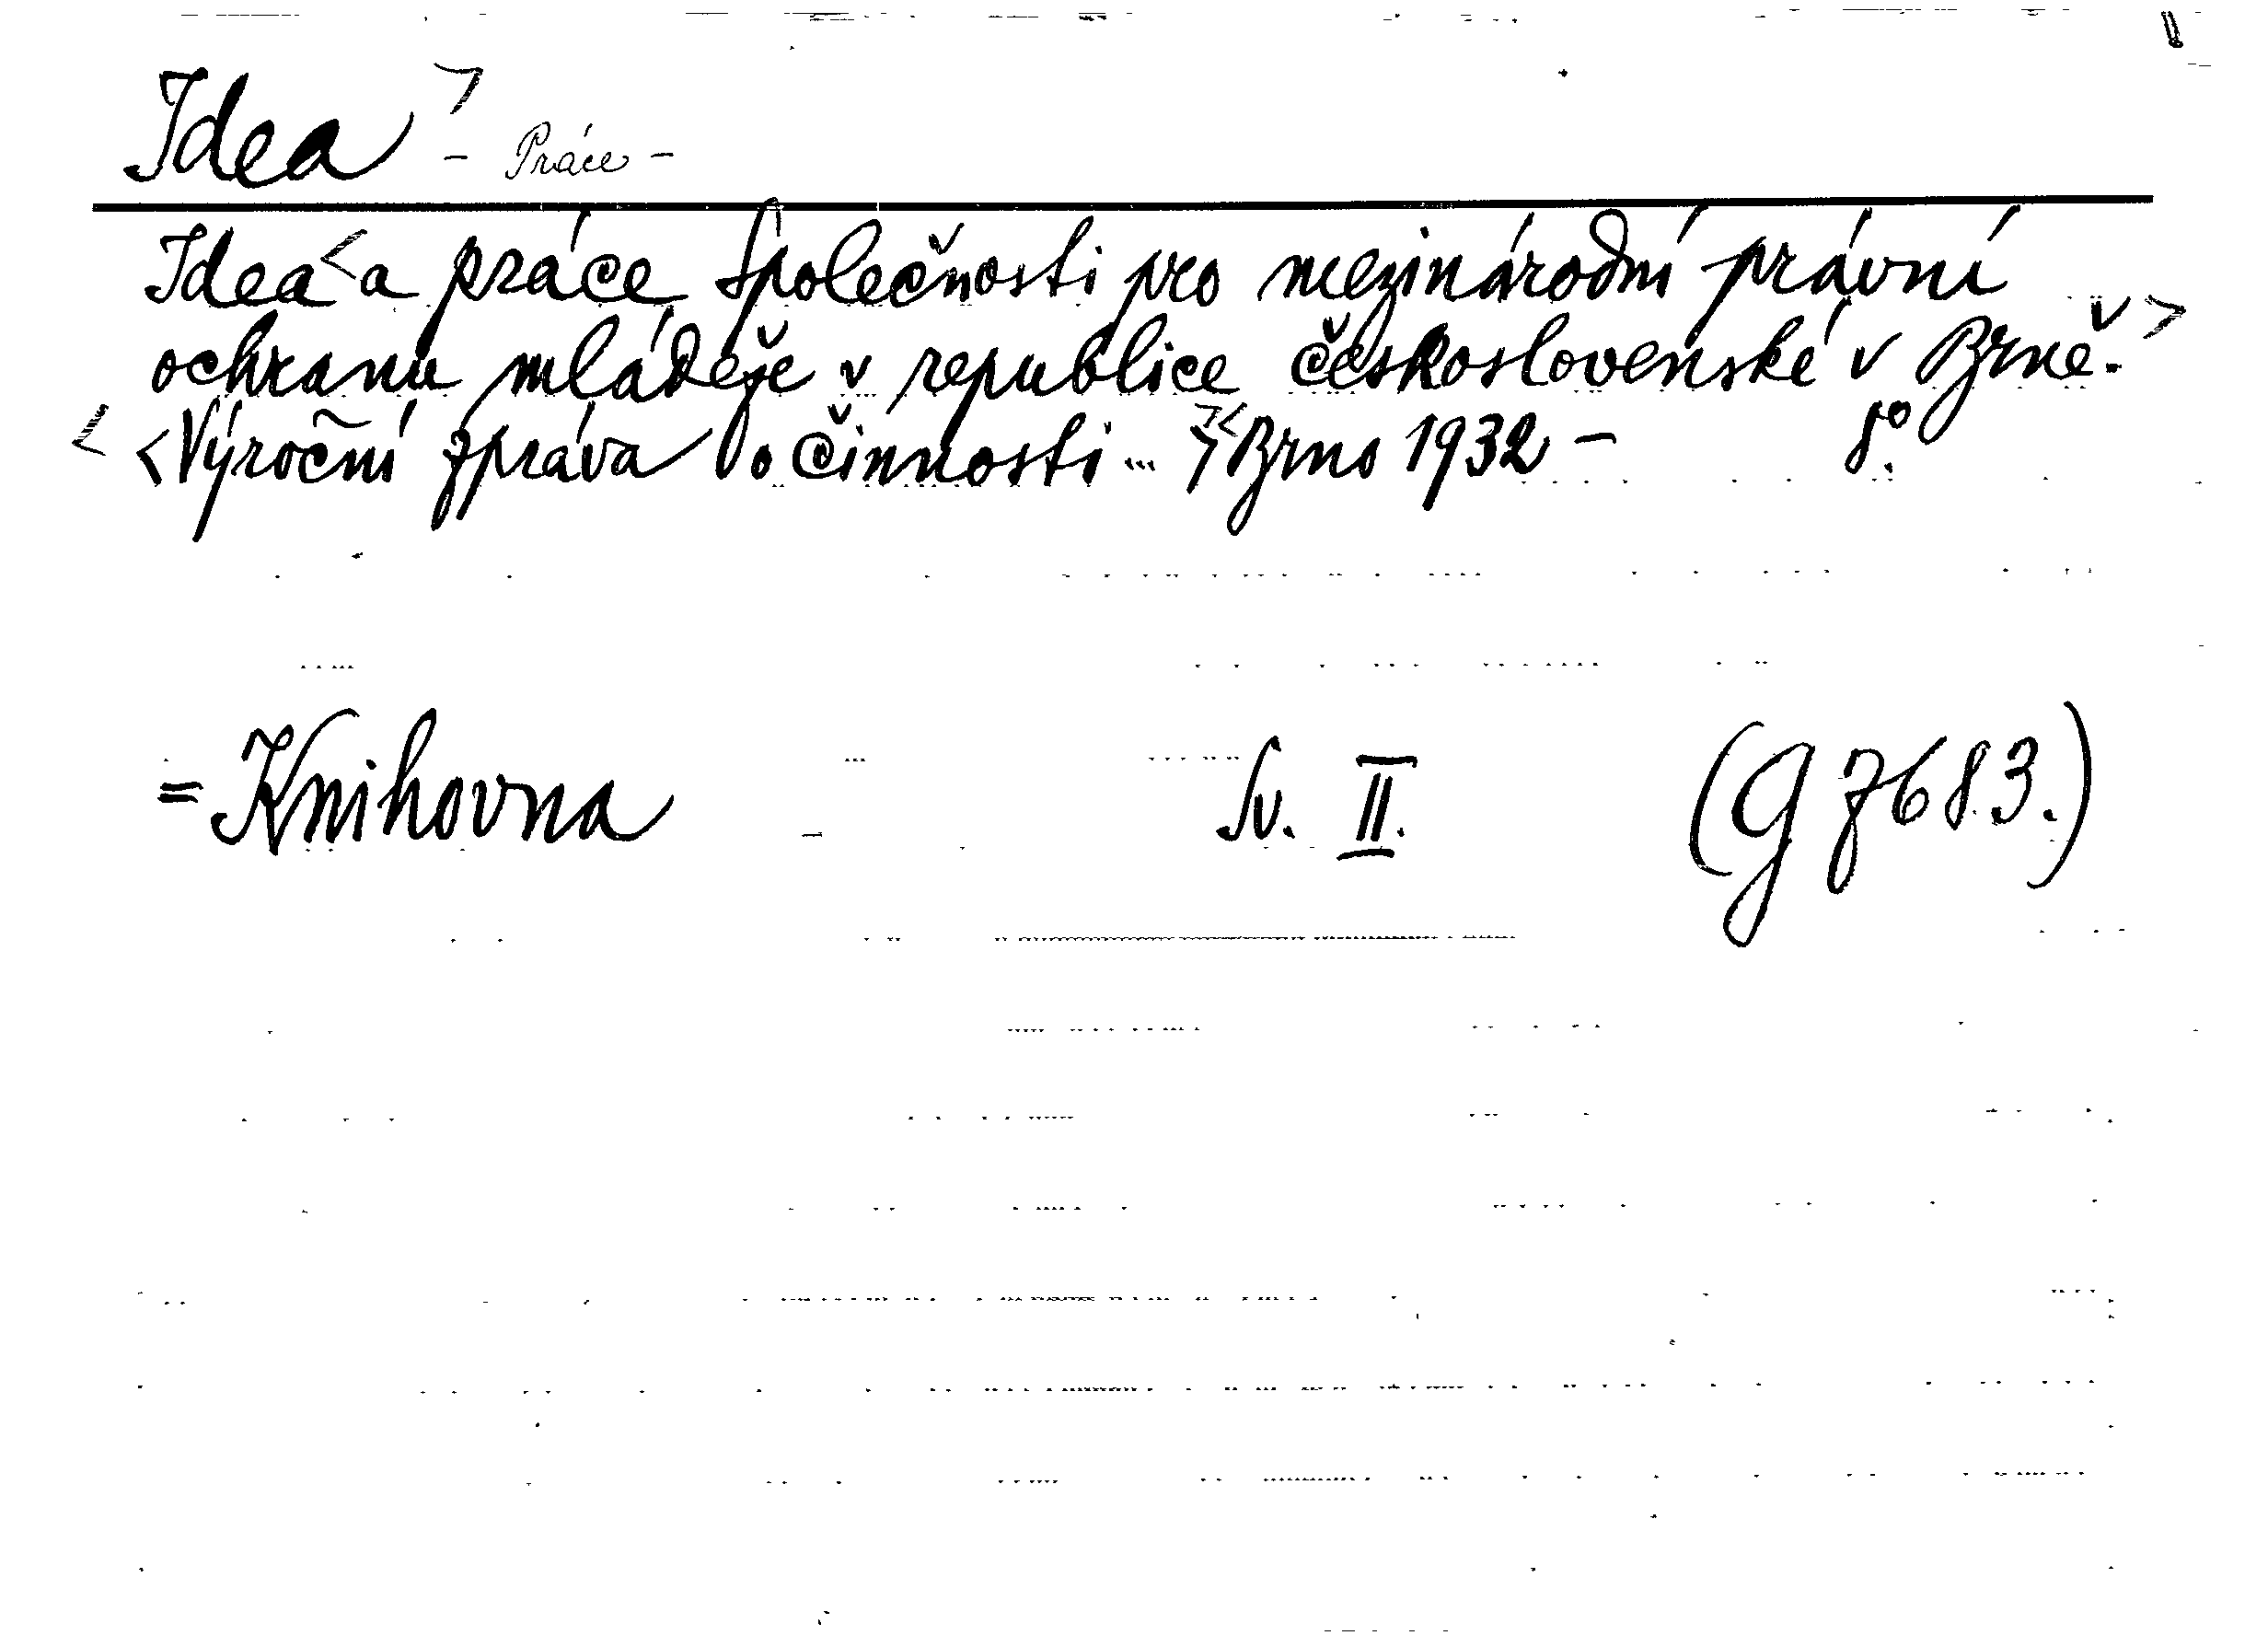 Idea > - Práce -
Idea < a práce Společnosti pro mezinárodní právní
ochranu mládeže v republice československé v Brně. >
< < Výroční zpráva o činnosti ... > > < Brno 1932 - 8°.
= Knihovna Sv. II. (G 7683.)